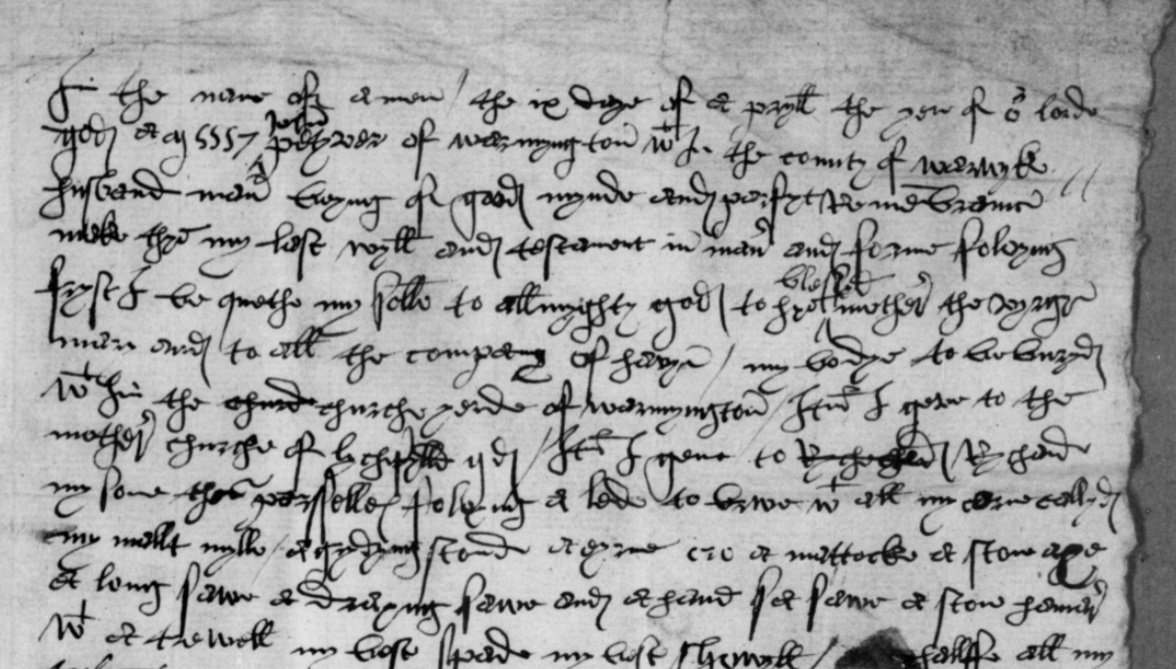 In the name of g amen / the ix daye of apryll the yere of or lorde
god a m 5557 John petyver of warmyngton wt In the county of warwyke
husband man beyng of good mynde and parfyt Remembrance //
make thys my last wyll and testament in manr and forme foloyng
fryst I be quethe my solle to allmyghty god to hys blessed mother the vyrgy
mary and to all the company of havyn / my bodye to be buryd
wt hin the church churche yerde of warmyngton / Itm I geve to the
mother churche of lychfylld ijd / Itm I geve to Rychard
my sone thes parselles foloyng a lede to brwe wt all my cerne callyd
my mallt mylle / a gryndyng stone a eyrne cro a mattocke a stone axe
a long sawe a drayng sawe and a hand sawe a stone hamer
wt a trewell my best spade my best shovyll / halffe all my